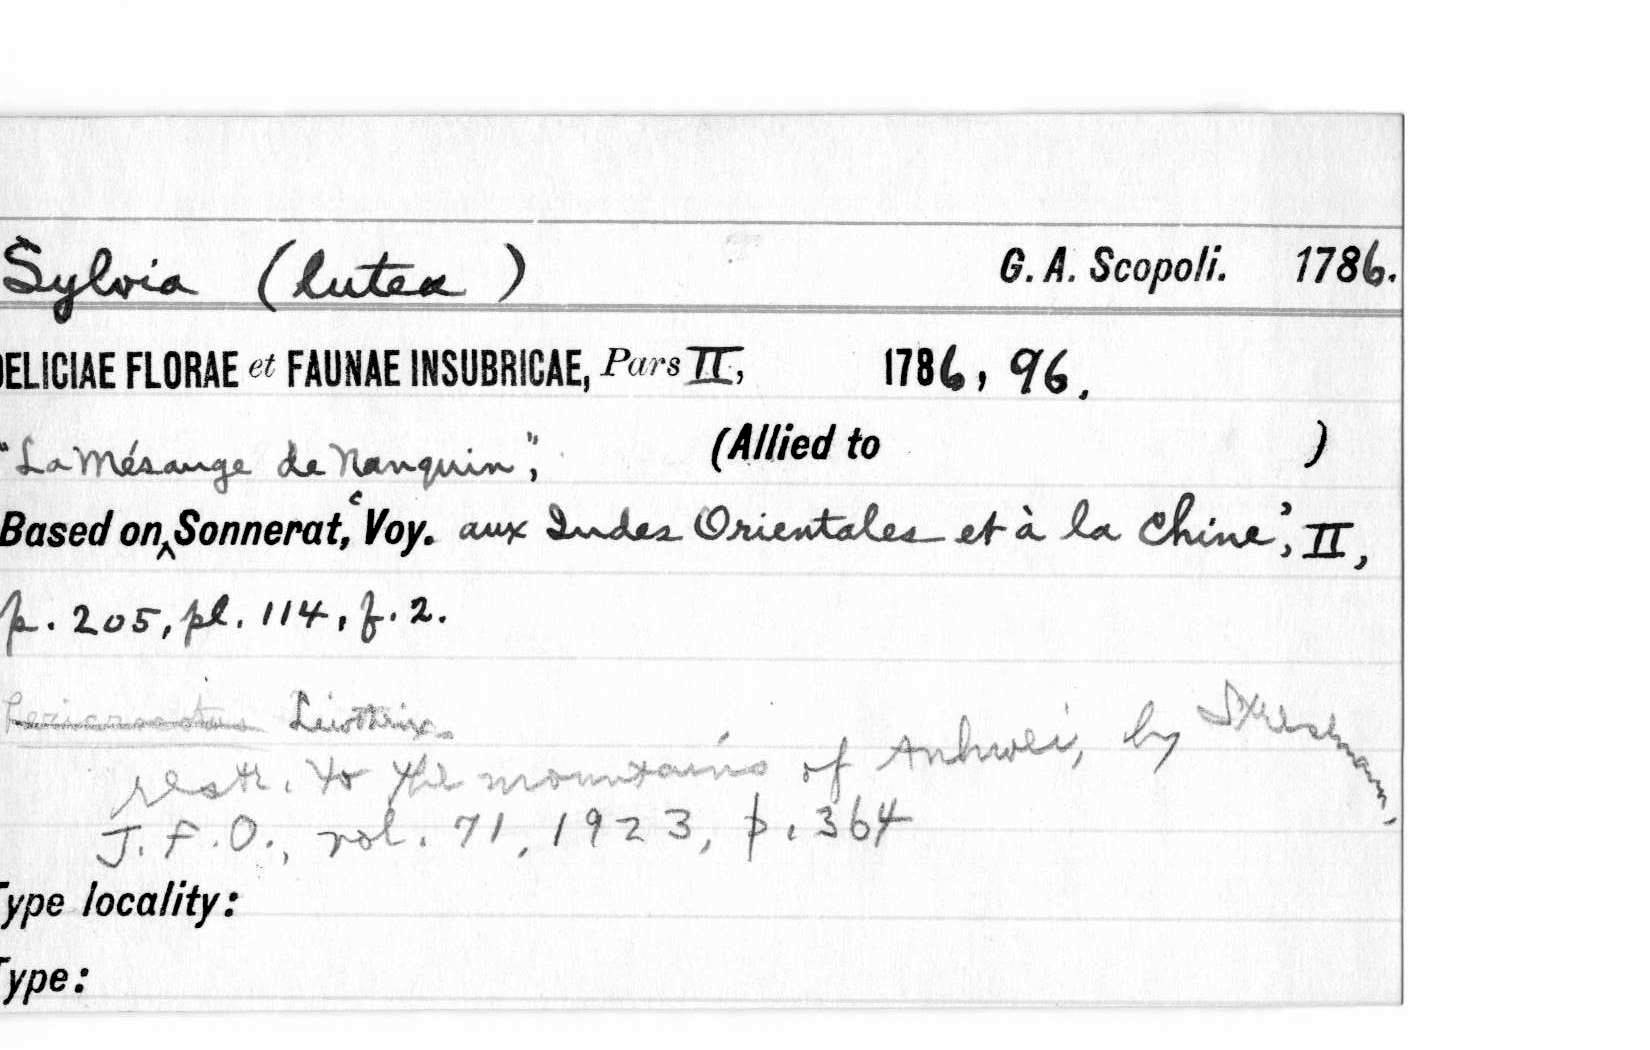 Sylvia (lutea) G. A. Scopoli. 1786.
DELICIAE FLORAE et FAUNAE INSUBRICAE, Pars II, 1786, 96.
"La Mésange de Nanquin", (Allied to )
Based on ‸ Sonnerat, ‘Voy. aux Indes Orientales et à la Chine’, II,
p. 205, pl. 114, f. 2.
Pericrocotus Leiothrix.
restr. to the mountains of Anhwei, by Stresemann,
J.F.O., vol. 71, 1923, p. 364
Type locality:
Type: